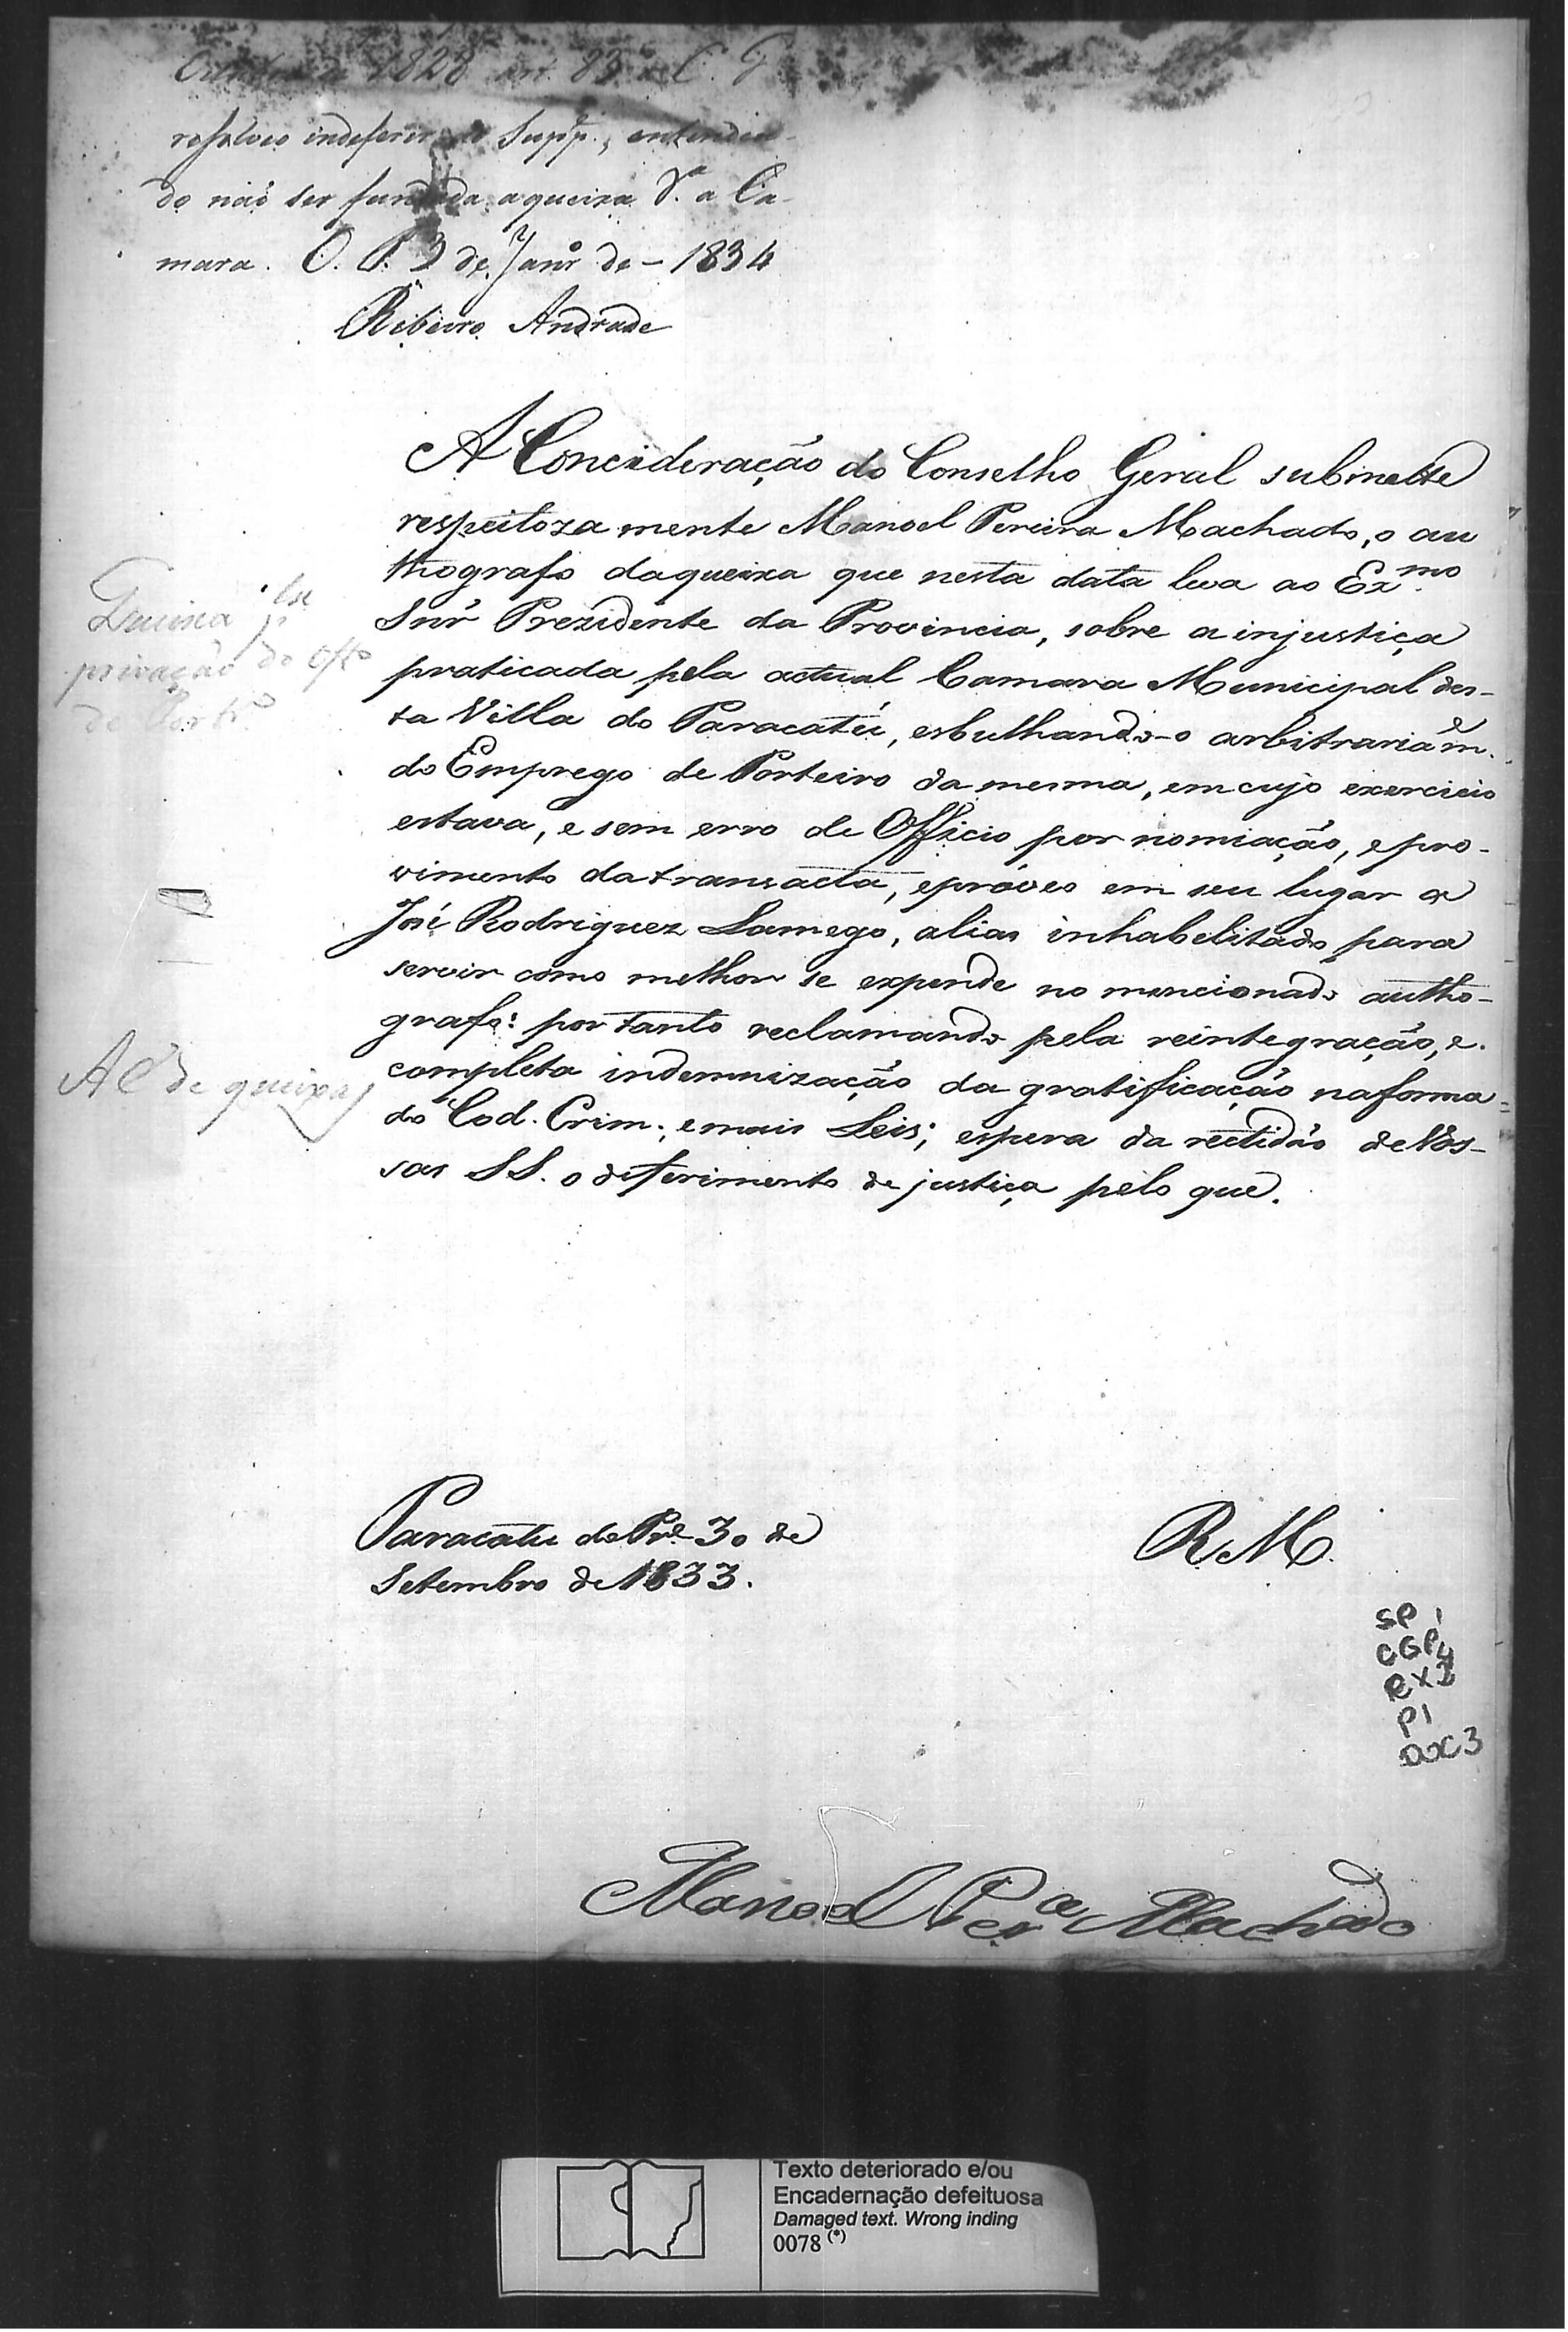 Outubro de 1828 art. 83 o C. G
resolveo indeferir ao Supp.e, entenden-
do não ser fundada a queixa S.e a Ca-
mara. O. P. 3 de Janr.o de - 1834
Ribeiro Andrade
A Concideração do Conselho Geral submette
respeitoza mente Manoel Pereira Machado, o au
thografo daqueixa que nesta data leva ao Ex.mo
Snr̃ Prezidente da Provincia, sobre a injustiça
praticada pela actual Camara Municipal des-
ta Villa do Paracatú, esbulhando-o arbitrariam.e
do Emprego de Porteiro da mesma, em cujo exercicio
estava, e sem erro de Officio por nomiação, e pro-
vimento da transacta, e proveo em seu lugar a
José Rodriguez Lamego, alias inhabelitado para
servir como melhor se expende no mencionado autho-
grafo: por tanto reclamando pela reintegração, e
completa indemnização da gratificação na forma
do Cod. Crim., e mais Leis; espera da rectidão de Vos-
sas SS. o deferimento de justiça pelo que.
Queixa p.r
privação do Off.o
de Port.o
A C de queixas
Paracatu do Pr.e 30 de
Setembro de 1833.
R. M.
SP 1
CGP4
CX2
P1
DOC3
Manoel Per.a Machado
Texto deteriorado e/ou
Encadernação defeituosa
Damaged text. Wrong inding
0078 (*)